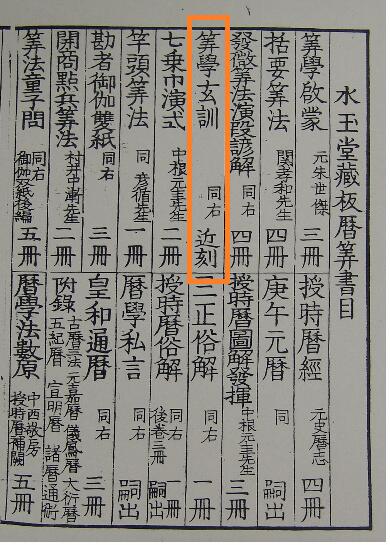 水玉堂藏板暦筭書目
筭學啟蒙 元朱世傑 三冊
括要筭法 関孝和先生 四冊
發微筭法演段諺解 同右 四冊
筭學玄訓 同右 近刻
七乗巾演式 中根元圭先生 二冊
竿頭筭法 同彦循先生 一冊
勘者御伽雙紙 同右 三冊
開商點兵筭法 村井中漸先生 二冊
筭法童子問 同右 御伽双紙後編 五冊
授時暦經 元史暦志 四冊
庚午元暦 同 嗣出
授時暦圖解發揮 中根元圭先生 三冊
三正俗解 同右 一冊
授時暦俗解 同右 後巻三冊 一冊 嗣出
暦學私言 同右 嗣出
皇和通暦 同右 三冊
附錄 古暦三法 元嘉暦 儀鳳暦 大衍暦 五紀暦 宣明暦 諸暦通術
暦學法數原 中西敬房 授時暦補闕 五冊